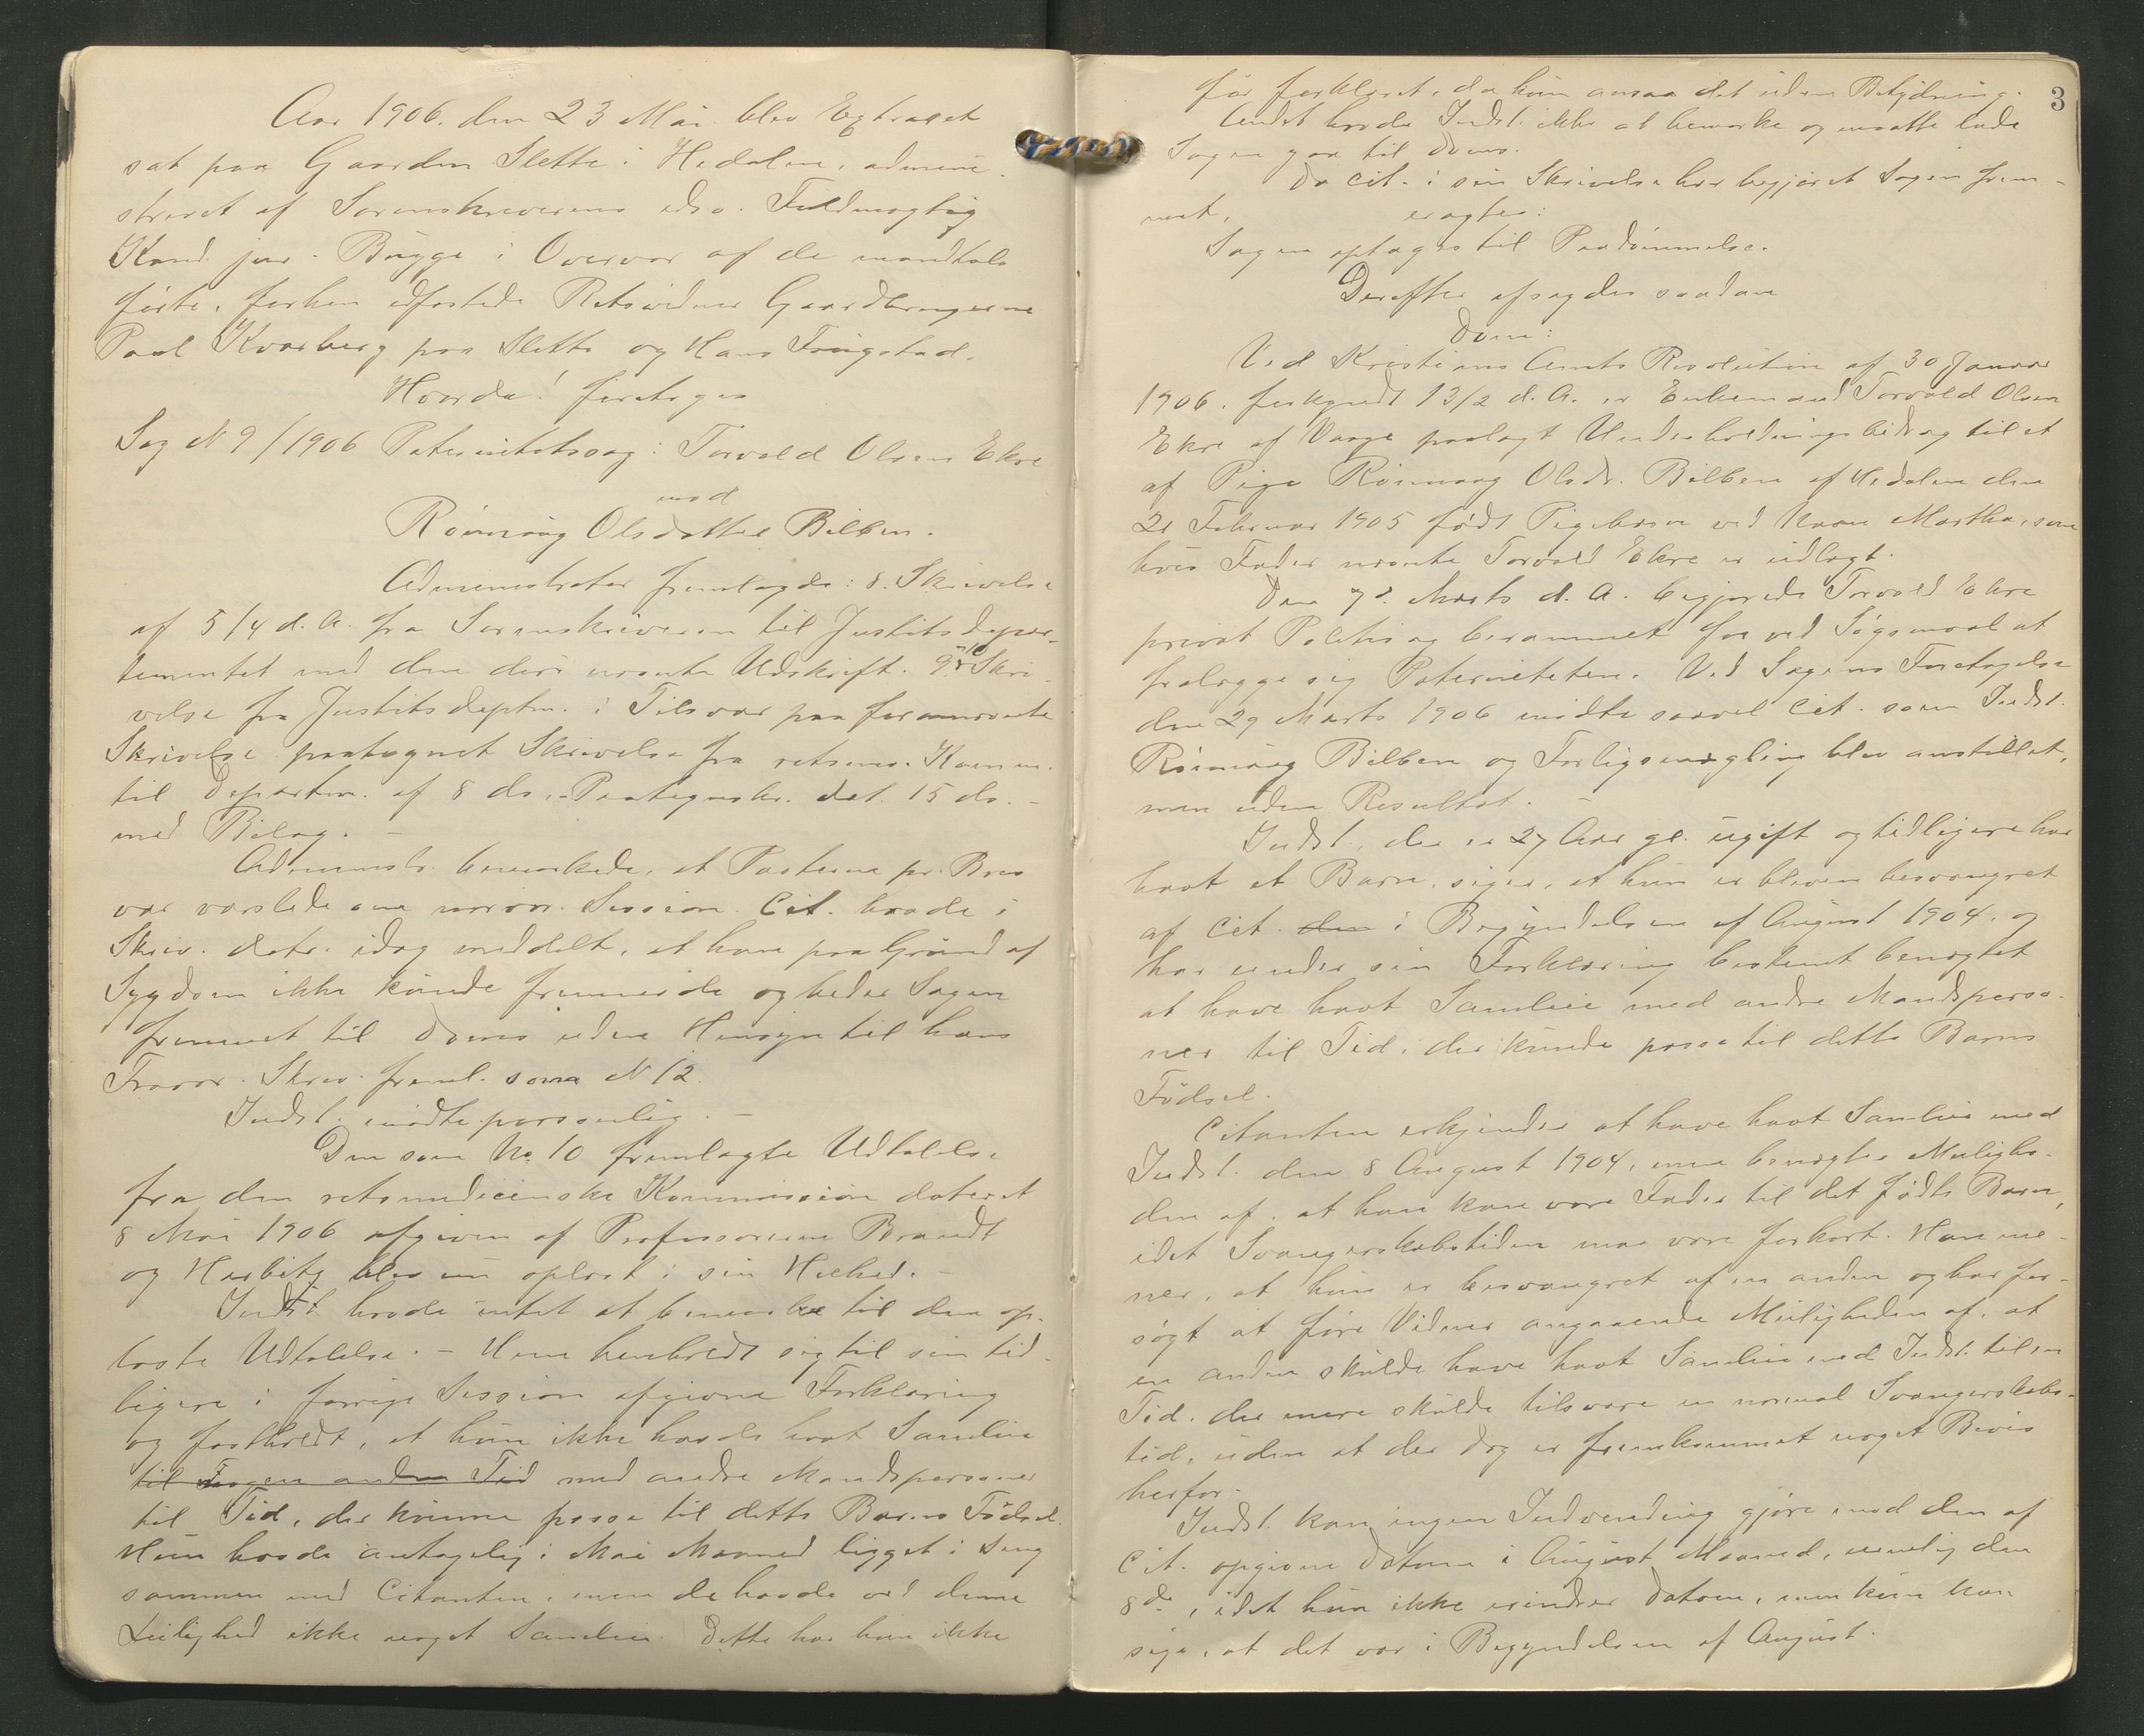 Aar 1906. den 23 Mai blev Extraret
sat paa Gaarden Slette i Hedalen, admini-
streret af Sorenskriverens edsv. Fuldmægtig
Kand. jur. Bugge i Overvær af de mandtals
førte, forhen edfæstede Retsvidner Gaardbrugerne
Paul Kvarberg paa Slette og Hans Tringstad.
Hvorda! foretoges
Sag N 9/1906 Paternitetssag: Torvald Olsen Ekre
mod
Rønnaug Olsdatter Bilben.
Administrator fremlagde: 8. Skrivelse
af 5/4 d. A. fra Sorenskriveren til Justitsdepar-
tementet med den deri nævnte Udskrift. 9. Skri-
velse fra Justitsdeptm. i Tilsvar paa førnævnte
Skrivelse paategnet Skrivelse fra retsmed. Komm.
til Departm. af 8 ds., Paategnskr. dat. 15 ds. -
med Bilag. -
Administr. bemærkede, at Parterne pr. Brev
var varslede om nærvær. Session. Cit. havde i
Skriv. datr. idag meddelt, at han paa Grund af
Sygdom ikke kunde fremmøde og beder Sagen
fremmet til Doms uden Hensyn til hans
Fravær. Skriv. freml. som N 12.
Indst. mødte personlig. -
Den som No 10 fremlagte Udtalelse
fra den retsmedicinske Kommission dateret
8 Mai 1906 afgiven af Professorerne Brandt
og Harbitz blev nu oplæst i sin Helhed. -
Indst. havde intet at bemærke til den op-
læste Udtalelse. - Hun henholdt sig til sin tid-
ligere i forrige Session afgivne Forklaring
og fastholdt, at hun ikke havde havt Samleie
til nogen anden Tid med andre Mandspersoner
til Tid, der kunne passe til dette Barns Fødsel.
Hun havde antagelig i Mai Maaned ligget i Seng
sammen med Citanten, men de havde ved denne
Leilighed ikke noget Samleie. Dette har hun ikke
3
før forklaret, da hun ansaa det uden Betydning.
Andet havde Indst. ikke at bemærke og maatte lade
Sagen gaa til Doms.
Da Cit. i sin Skrivelse har begjæret Sagen frem-
met,
eragtes:
Sagen optages til Paadømmelse.
Derefter afsagdes saadan
Dom:
Ved Kristians Amts Resolution af 30 Januar
1906. forkyndt 13/2 d. A. er Enkemand Torvald Olsen
Ekre af Vaage paalagt Underholdningsbidrag til et
af Pige Rønnaug Olsdr. Bilben af Hedalen den
21 Februar 1905 født Pigebarn ved Navn Martha, som
hvis Fader nævnte Torvald Ekre er udlagt.
Den 7de Marts d. A. begjærede Torvald Ekre
privat Politisag berammet for ved Søgsmaal at
fralægge sig Paterniteten. Ved Sagens Foretagelse
den 29 Marts 1906 mødte saavel Cit. som Indst.
Rønnaug Bilben og Forligsmægling blev anstillet,
men uden Resultat. -
Indst., der er 27 Aar gl. ugift og tidligere har
havt et Barn, siger, at hun er bleven besvangret
af Cit. den i Begyndelsen af August 1904, og
har under sin Forklaring bestemt benægtet
at have havt Samleie med andre Mandsperso-
ner til Tid, der kunde passe til dette Barns
Fødsel.
Citanten erkjender at have havt Samleie med
Indst. den 8 August 1904, men benægter Mulighe-
den af, at han kan være Fader til det fødte Barn,
idet Svangerskabstiden maa være forkort. Han me-
ner, at hun er besvangret af en anden og har for-
søgt at føre Vidner angaaende Muligheden af, at
en anden skulde have havt Samleie med Indst. til en
Tid, der mere skulde tilsvare en normal Svangerskabs-
tid, uden at der dog er fremkommet noget Bevis
herfor.
Indst. kan ingen Indvending gjøre mod den af
Cit. opgivne Datum i August Maaned, nemlig den
8de, idet hun ikke erindrer Datoen, men kun kan
sige, at det var i Begyndelsen af August.